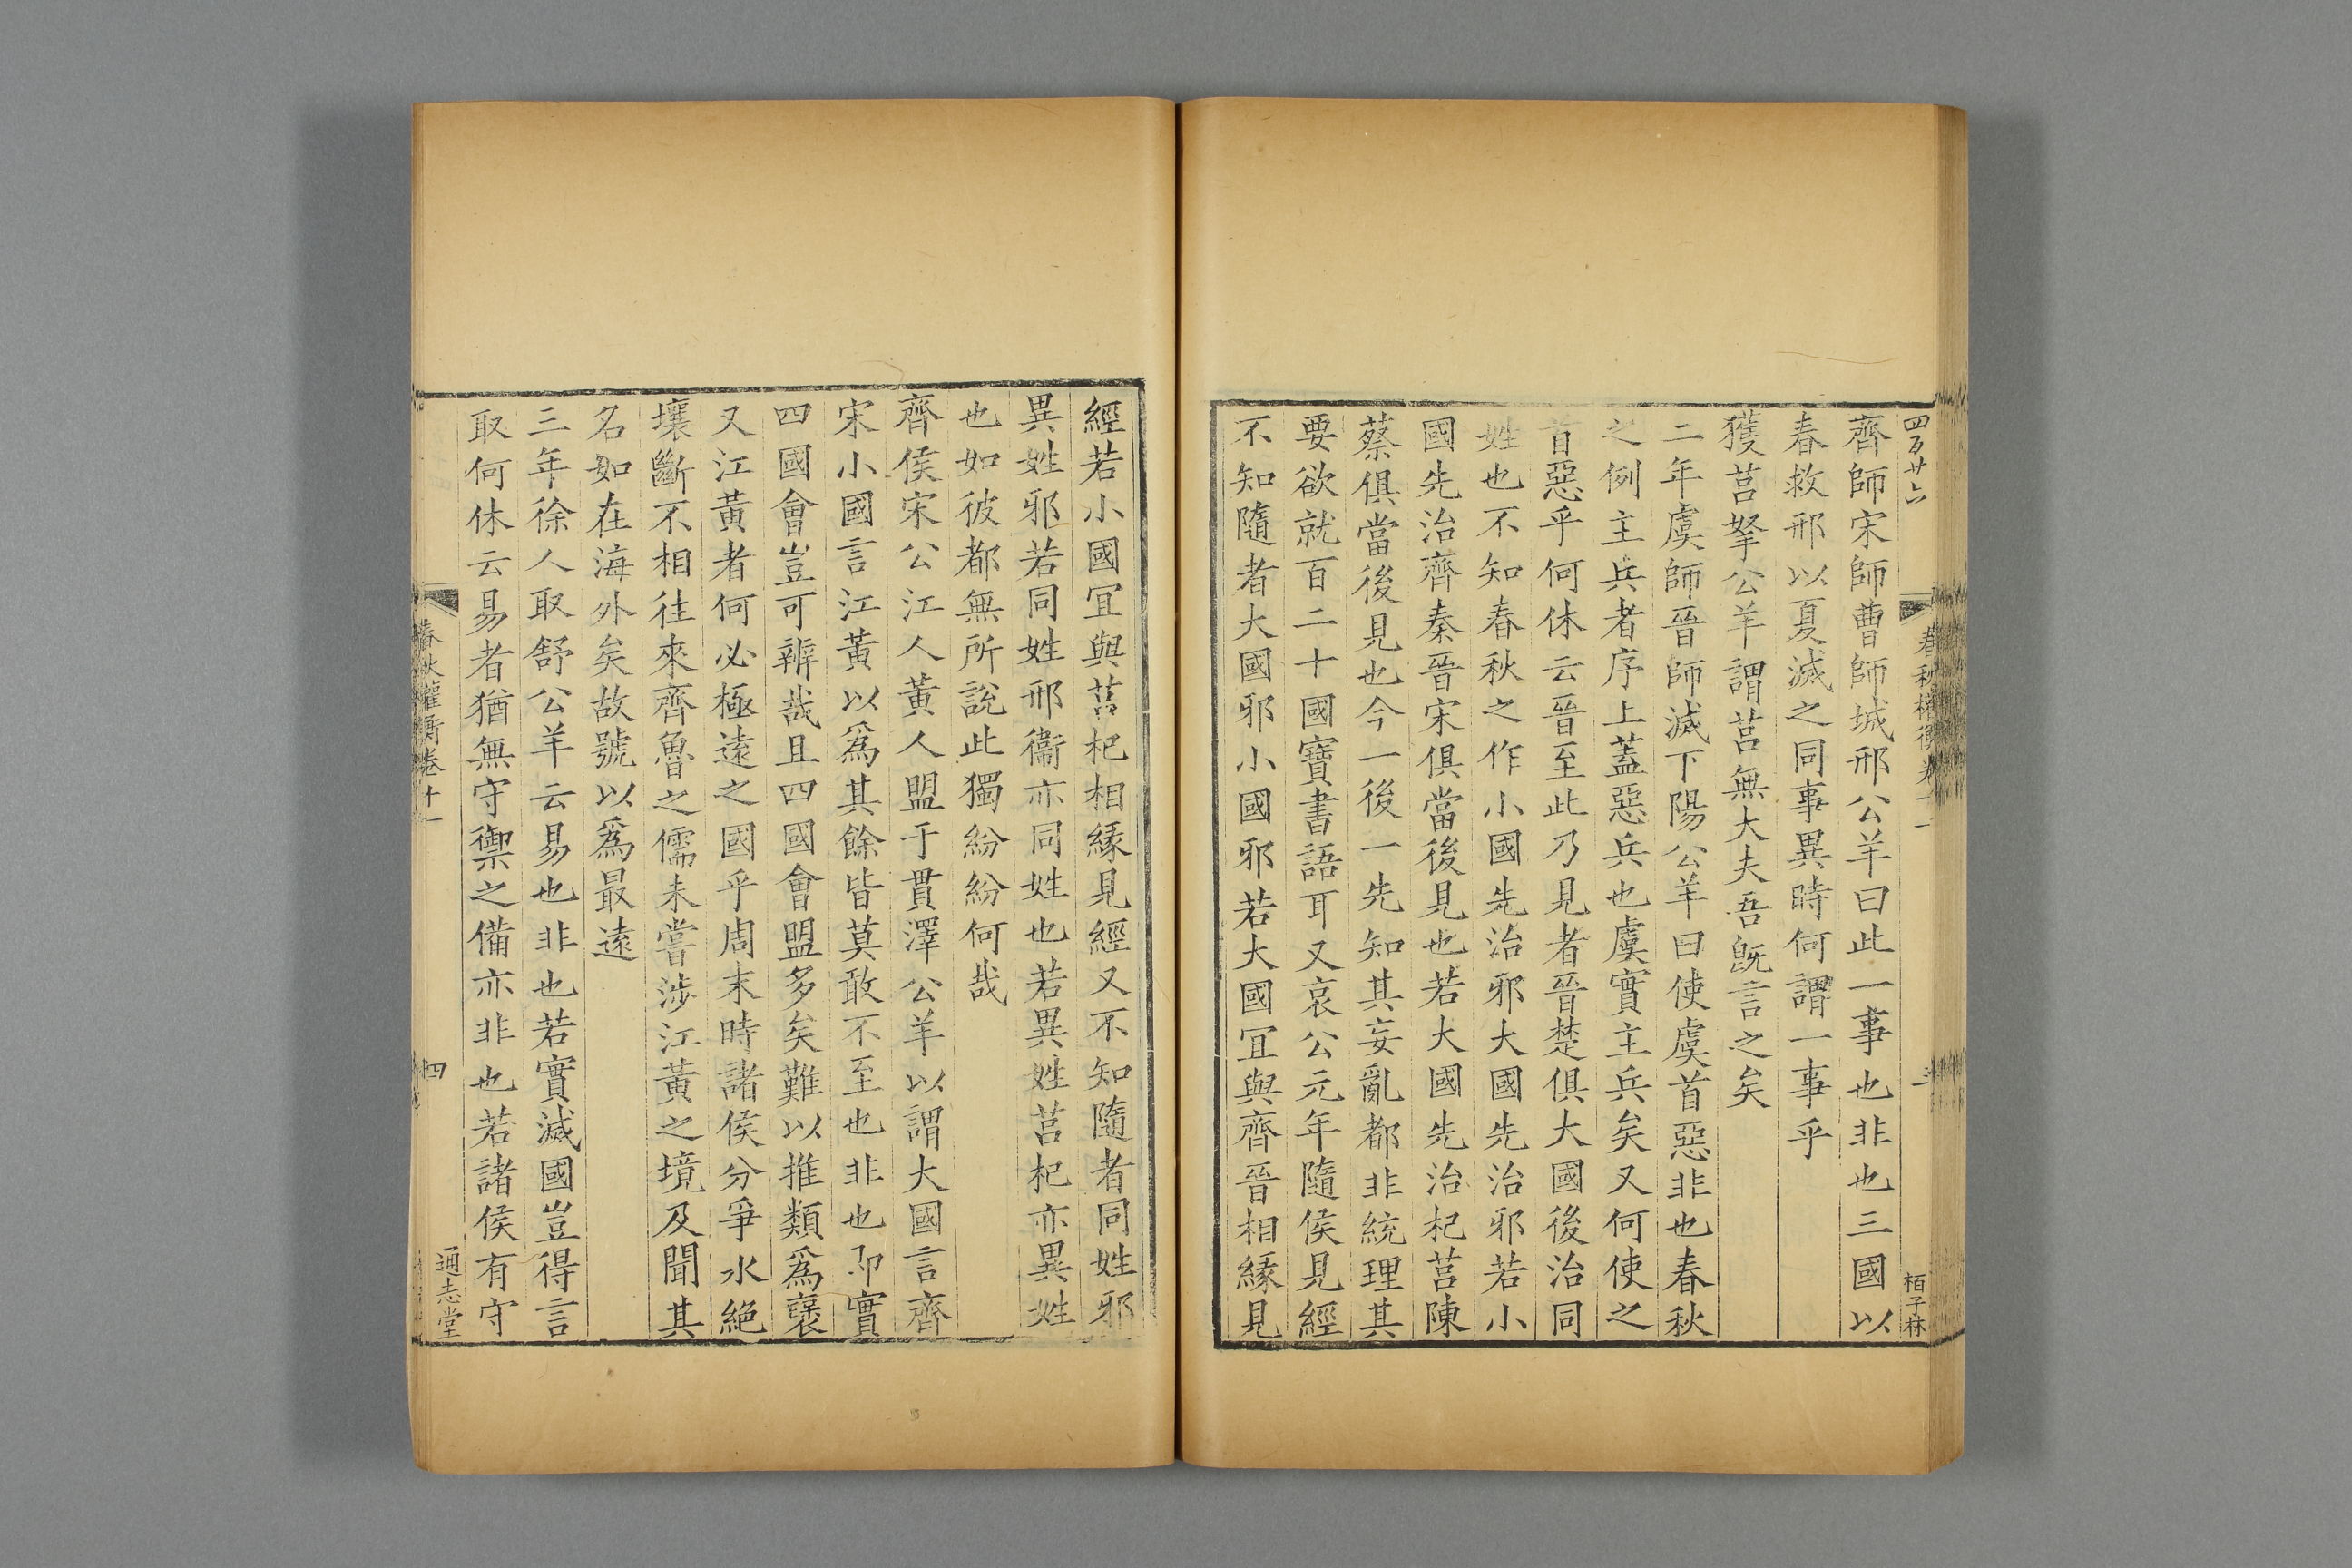 四百廿六
春秋權衡卷十一
栢子林
齊師宋師曹師城邢公羊曰此一事也非也三國以
春救邢以夏滅之同事異時何謂一事乎
獲莒挐公羊謂莒無大夫吾旣言之矣
二年虞師晉師滅下陽公羊曰使虞首惡非也春秋
之例主兵者序上蓋惡兵也虞實主兵矣又何使之
首惡乎何休云晉至此乃見者晉楚俱大國後治同
姓也不知春秋之作小國先治邪大國先治邪若小
國先治齊秦晉宋俱當後見也若大國先治杞莒陳
蔡俱當後見也今一後一先知其妄亂都非統理其
要欲就百二十國寶書語耳又哀公元年隨侯見經
不知隨者大國邪小國邪若大國冝與齊晉相緣見
經若小國冝與莒杞相緣見經又不知隨者同姓邪
異姓邪若同姓邢衞亦同姓也若異姓莒杞亦異姓
也如彼都無所說此獨紛紛何哉
齊侯宋公江人黃人盟于貫澤公羊以謂大國言齊
宋小國言江黃以爲其餘皆莫敢不至也非也卽實
四國會豈可辨哉且四國會盟多矣難以推類爲襃
又江黃者何必極遠之國乎周末時諸侯分爭水絶
壤斷不相往來齊魯之儒未嘗涉江黃之境及聞其
名如在海外矣故號以爲最遠
三年徐人取舒公羊云易也非也若實滅國豈得言
取何休云易者猶無守禦之備亦非也若諸侯有守
春秋權衡卷十一
四
通志堂